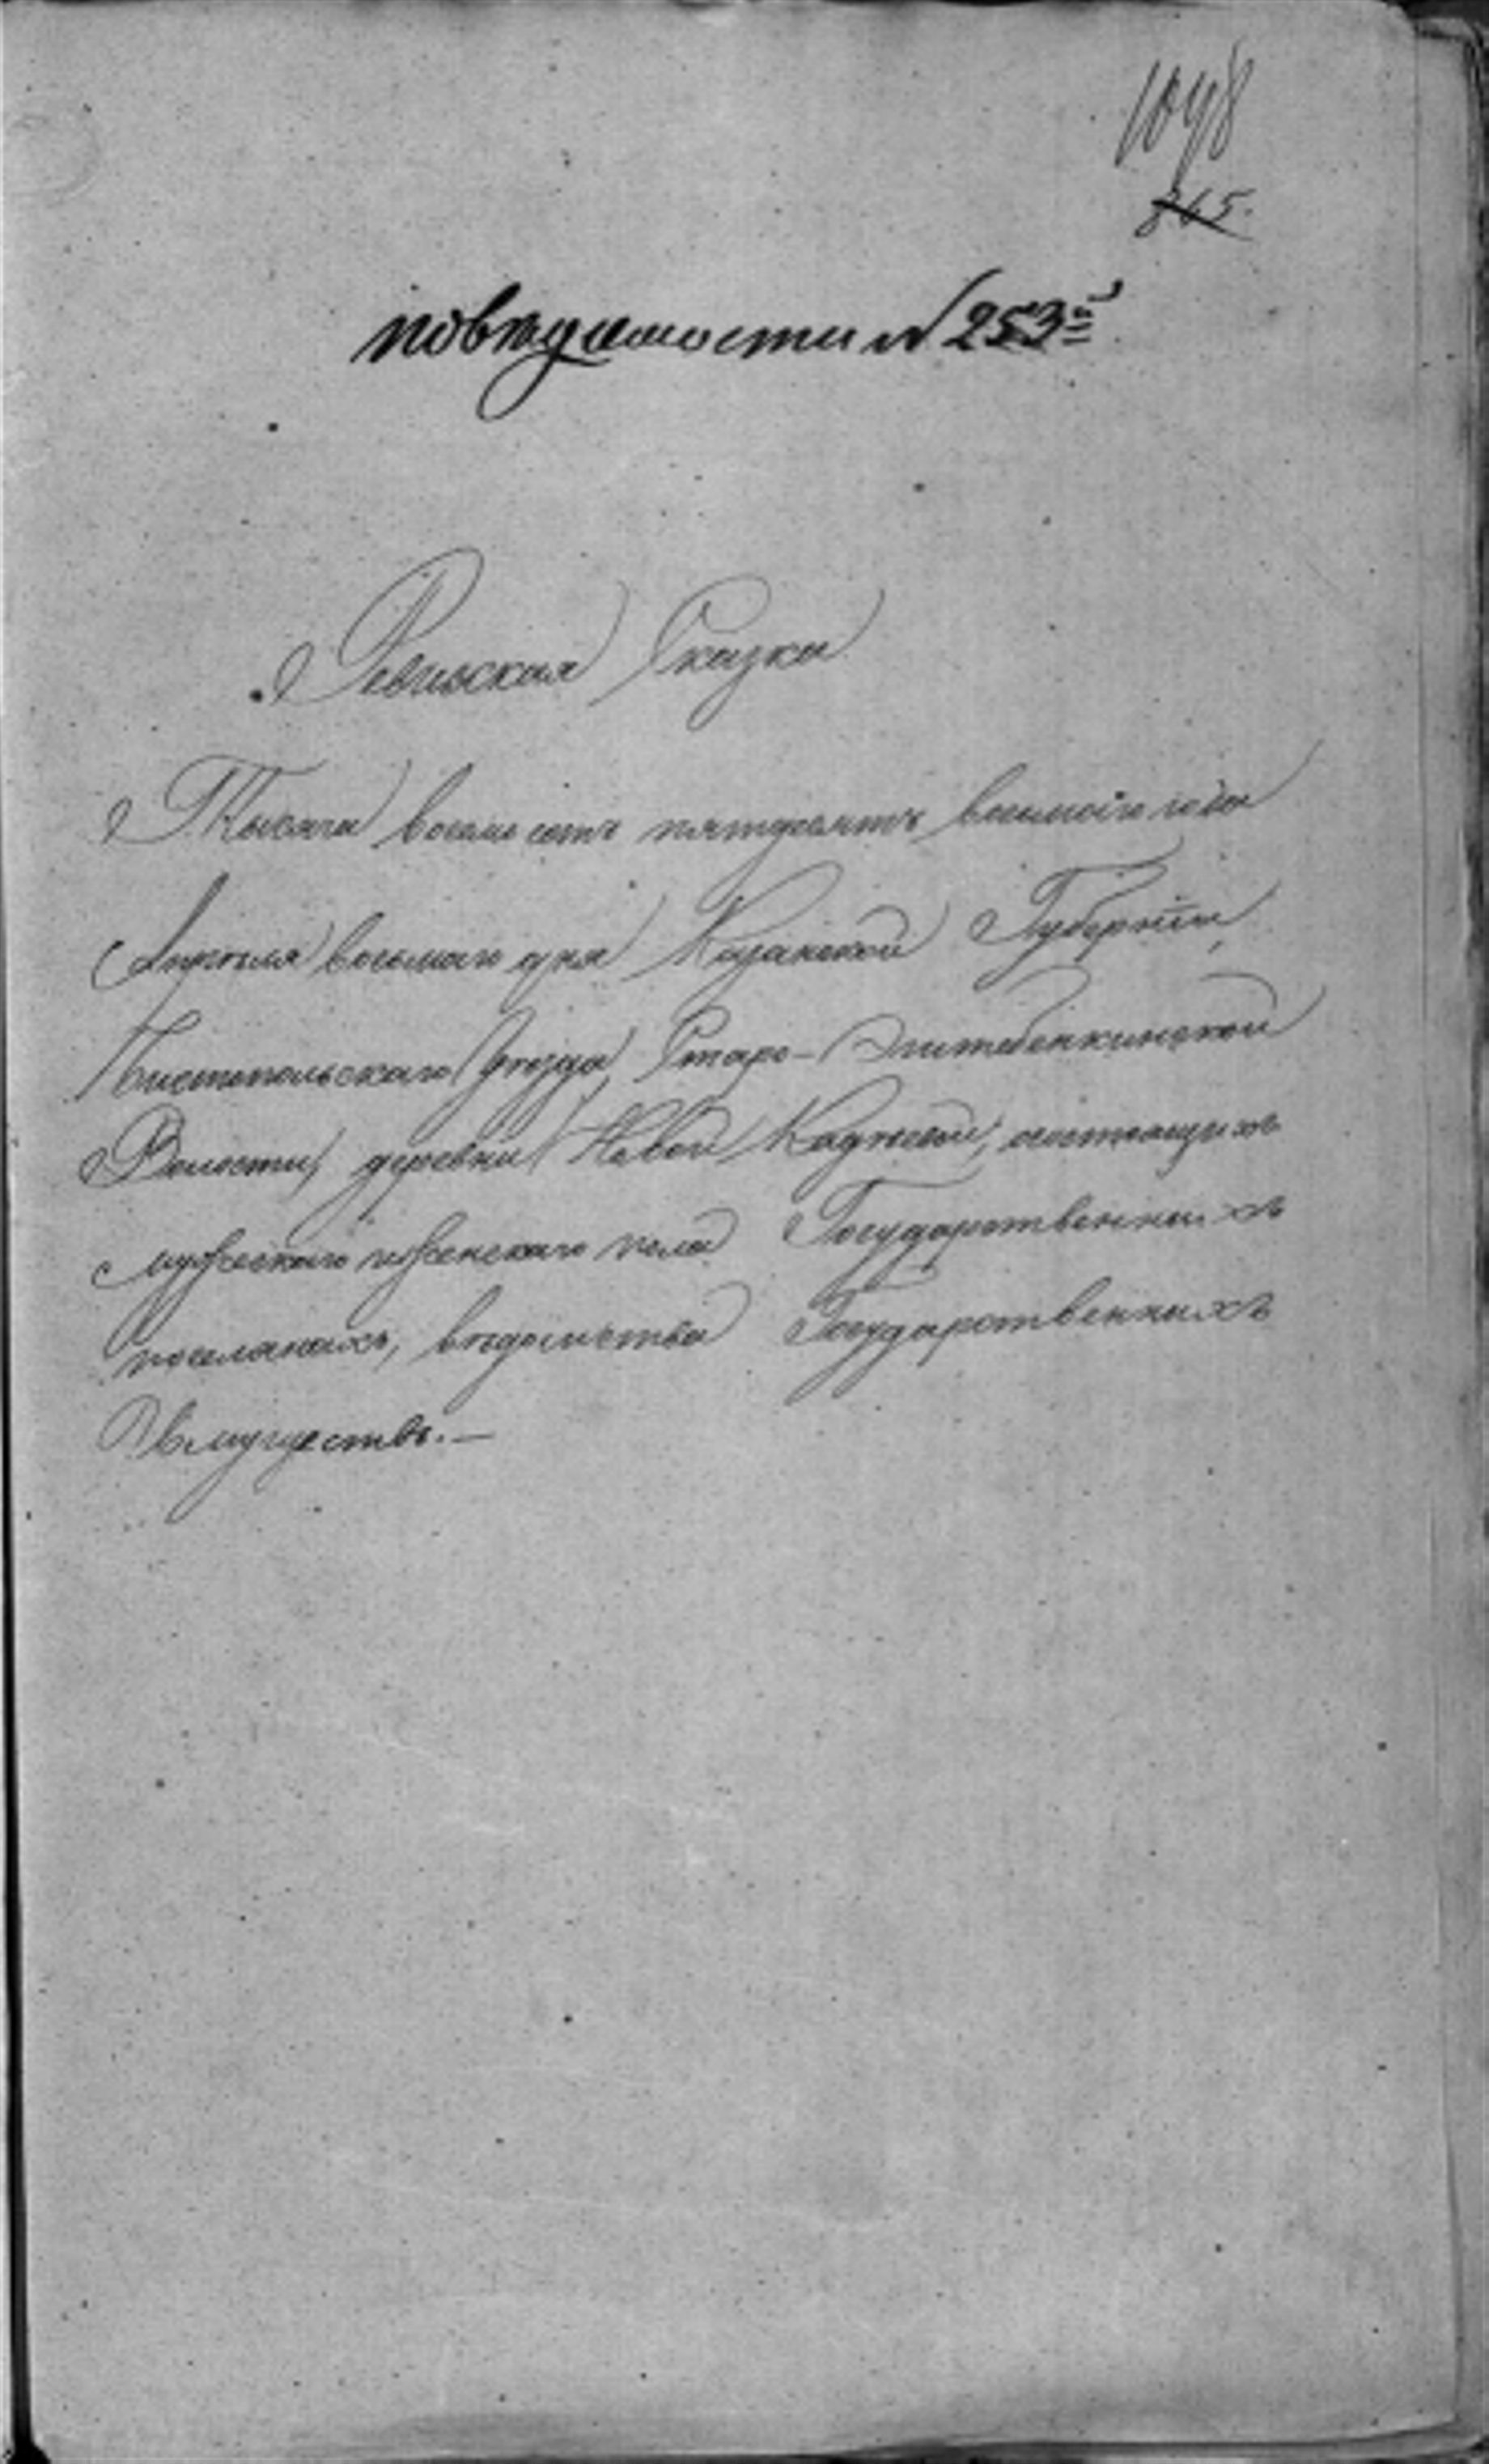 1048
365.
по вѣдомости № 253й
Ревизская Сказка
Тысяча восемь сотъ пятдесятъ восьмаго года
Апрѣля восьмаго дня Казанской Губерніи,
Чистопольскаго Уѣзда, Старо-
Волости, деревни Новой Кадѣевой, состоящихъ
мужескаго и женскаго пола Государственныхъ
поселянахъ, вѣдомства Государственныхъ
Имуществъ.—